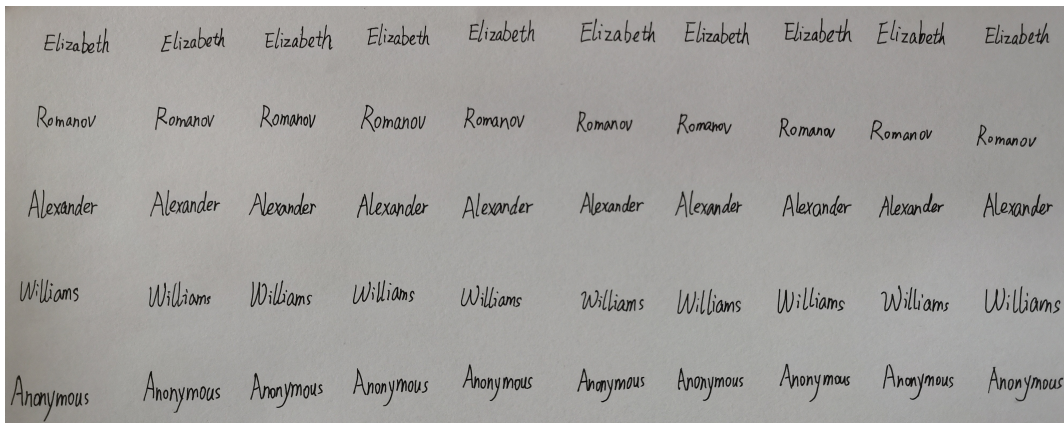 Elizabeth Elizabeth Elizabeth Elizabeth Elizabeth Elizabeth Elizabeth Elizabeth Elizabeth Elizabeth
Romanov Romanov Romanov Romanov Romanov Romanov Romanov Romanov Romanov Romanov
Alexander Alexander Alexander Alexander Alexander Alexander Alexander Alexander Alexander Alexander
Williams Williams Williams Williams Williams Williams Williams Williams Williams Williams
Anonymous Anonymous Anonymous Anonymous Anonymous Anonymous Anonymous Anonymous Anonymous Anonymous